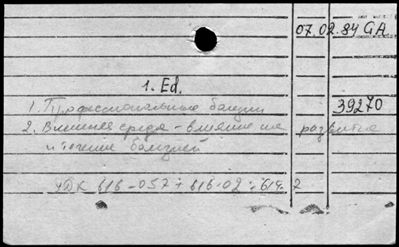 07.02.84 GA
1. Ed.
39270
1. Профессиональные болезни
2. Внешняя среда - влияние на развитие
и течение болезней
УДК 616-057 + 616-02 : 614.7